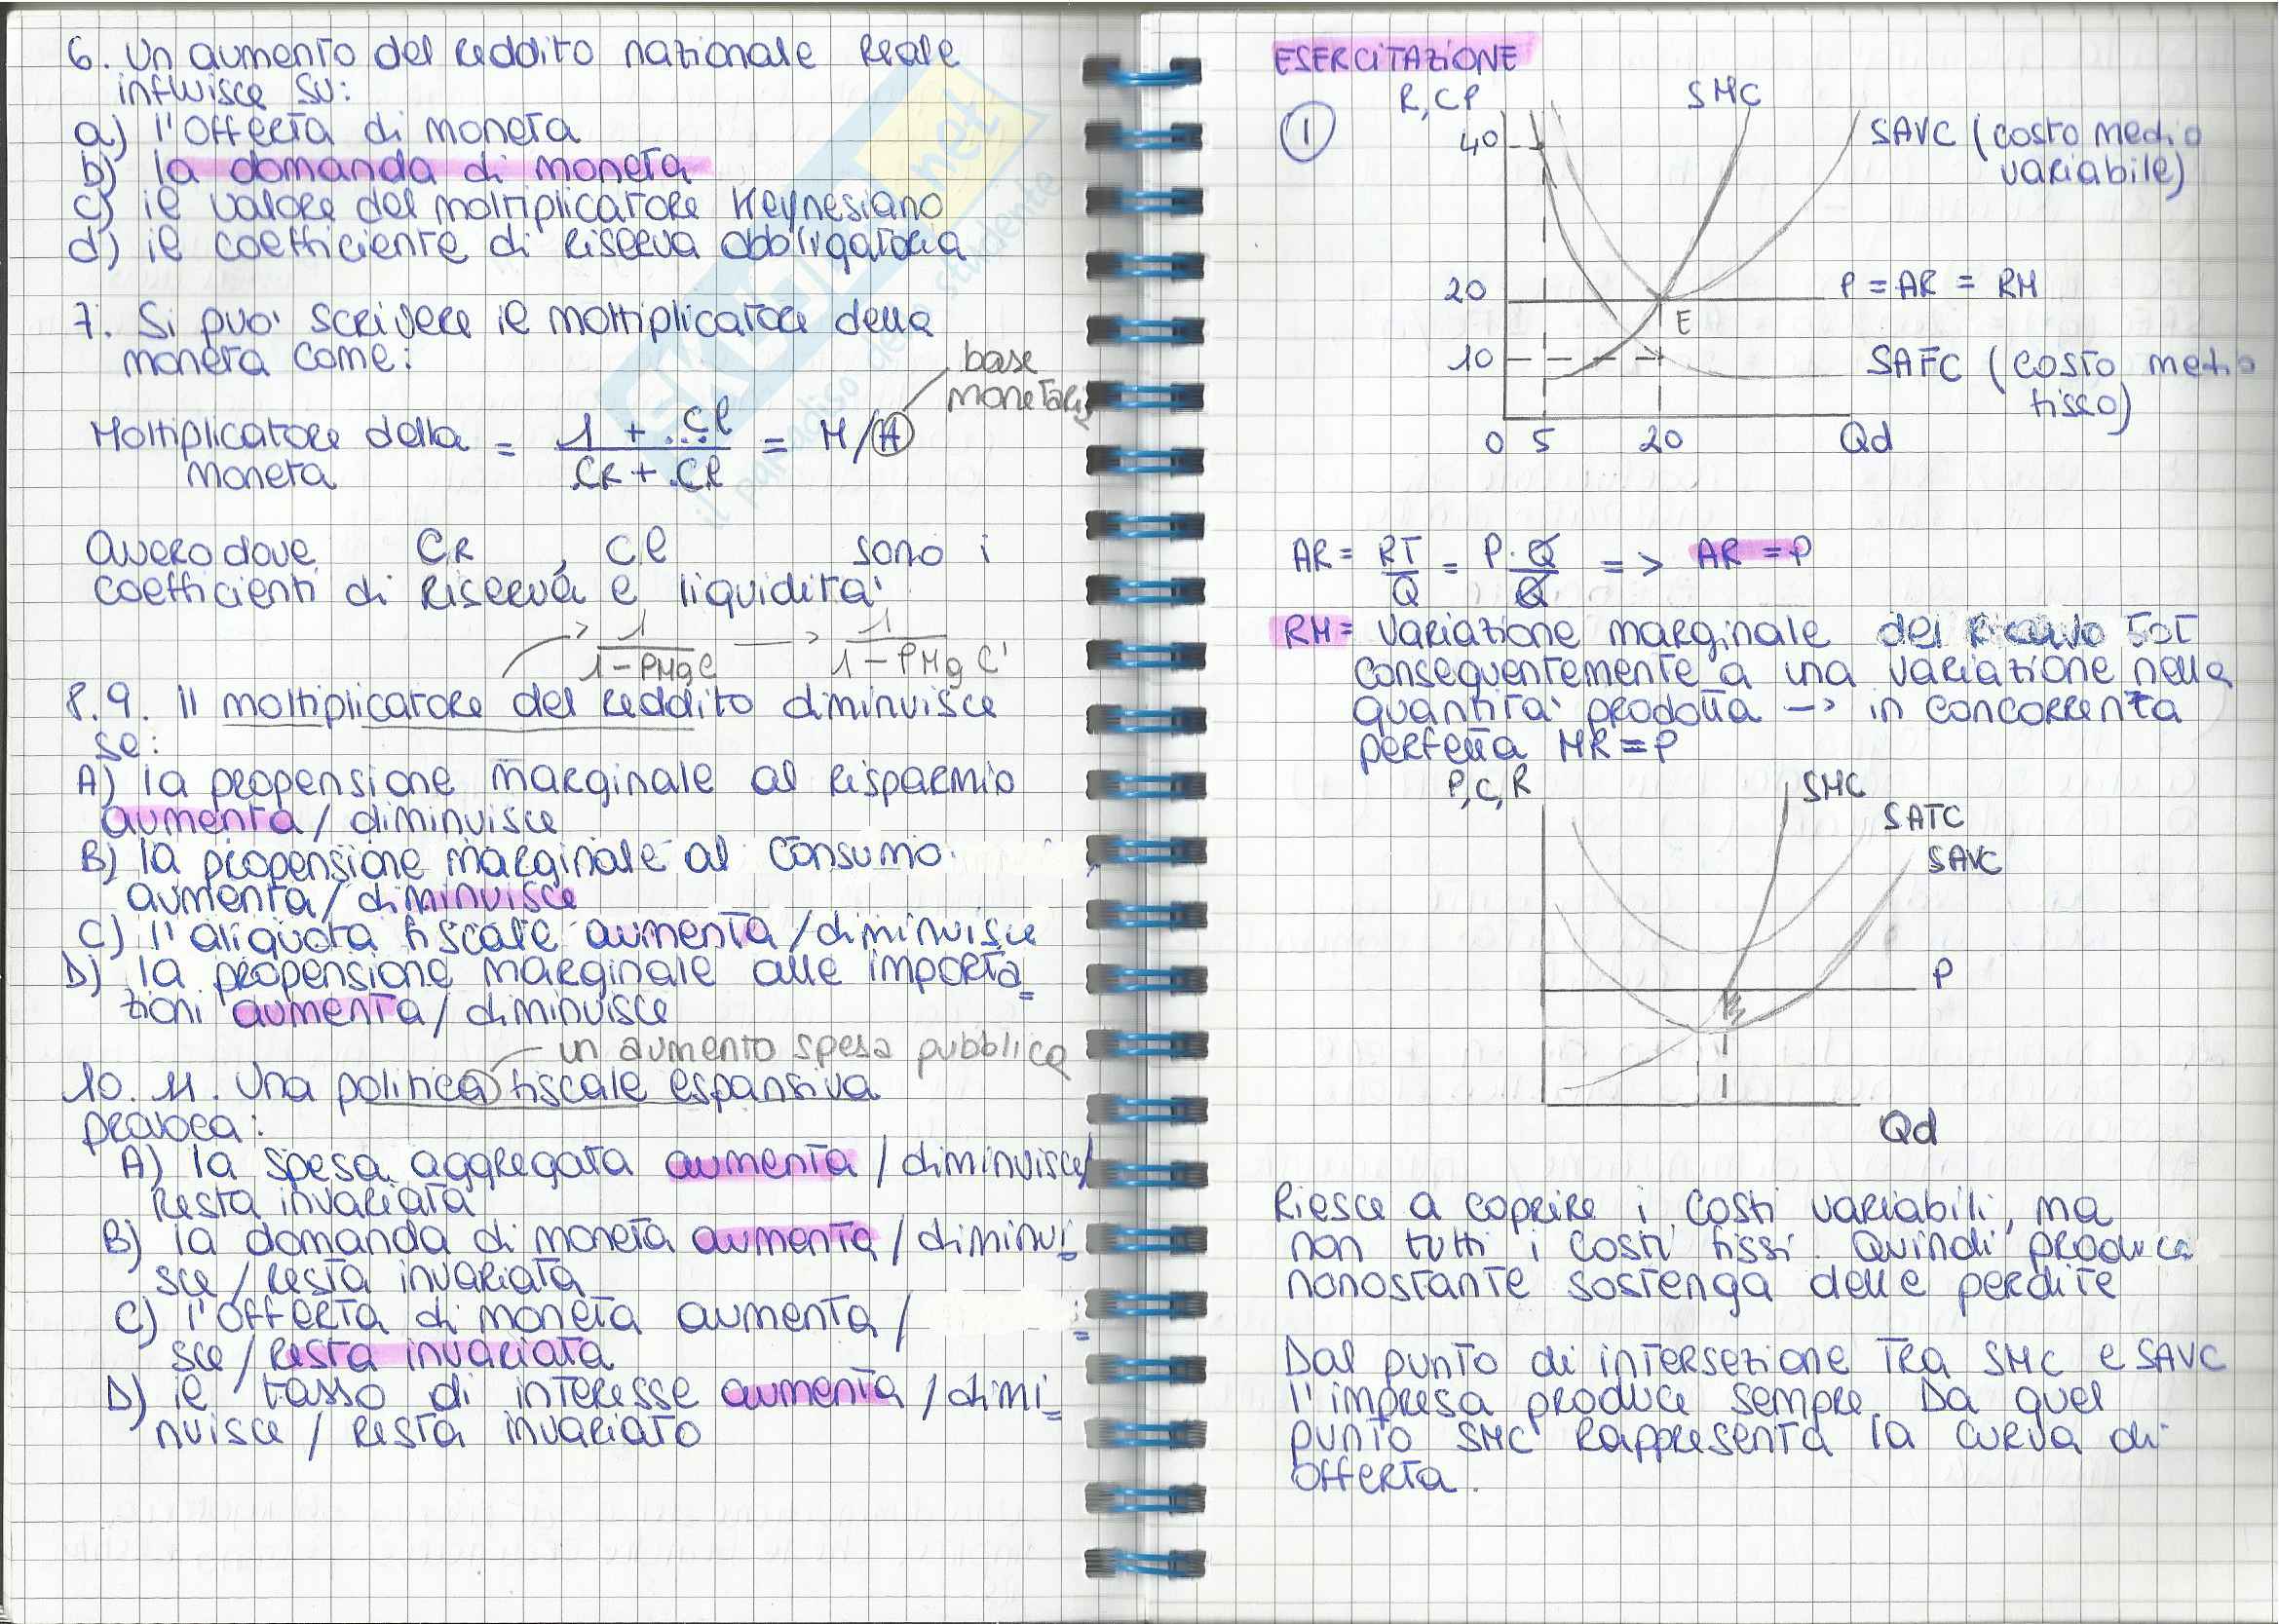 6. Un aumento del reddito nazionale reale
influisce su:
a) l'offerta di moneta
b) la domanda di moneta
c) il valore del moltiplicatore Keynesiano
d) il coefficiente di riserva obbligatoria
7. Si puo' scrivere il moltiplicatore della
moneta come:
base
monetaria
Moltiplicatore della moneta = 1 + cl / cR + cl = M/H
ovvero dove CR , Cl sono i
coefficienti di riserva e liquidita'
1/1-PMgC -> 1/1-PMgC'
8.9. Il moltiplicatore del reddito diminuisce
se:
A) la propensione marginale al risparmio
aumenta / diminuisce
B) la propensione marginale al consumo
aumenta / diminuisce
C) l'aliquota fiscale aumenta / diminuisce
D) la propensione marginale alle importa=
zioni aumenta / diminuisce
un aumento spesa pubblica
10. 11. Una politica fiscale espansiva
provoca:
A) la spesa aggregata aumenta / diminuisce/
resta invariata
B) la domanda di moneta aumenta / diminui=
sce / resta invariata
C) l'offerta di moneta aumenta /
sce / resta invariata
D) il tasso di interesse aumenta / dimi=
nuisce / resta invariato
SKUOLA.net
il paradiso dello studente
ESERCITAZIONE
1
R, CP
SMC
40
SAVC (costo medio
variabile)
20
P = AR = RM
E
10
SAFC (costo medio
fisso)
0 5 20 Qd
AR = RT/Q = P·Q/Q => AR = P
RM = variazione marginale del ricavo tot
conseguentemente a una variazione nella
quantita' prodotta -> in concorrenza
perfetta MR = P
P, C, R
SMC
SATC
SAVC
P
Qd
Riesce a coprire i costi variabili, ma
non tutti i costi fissi. Quindi produce
nonostante sostenga delle perdite
Dal punto di intersezione tra SMC e SAVC
l'impresa produce sempre. Da quel
punto SMC rappresenta la curva di
offerta.